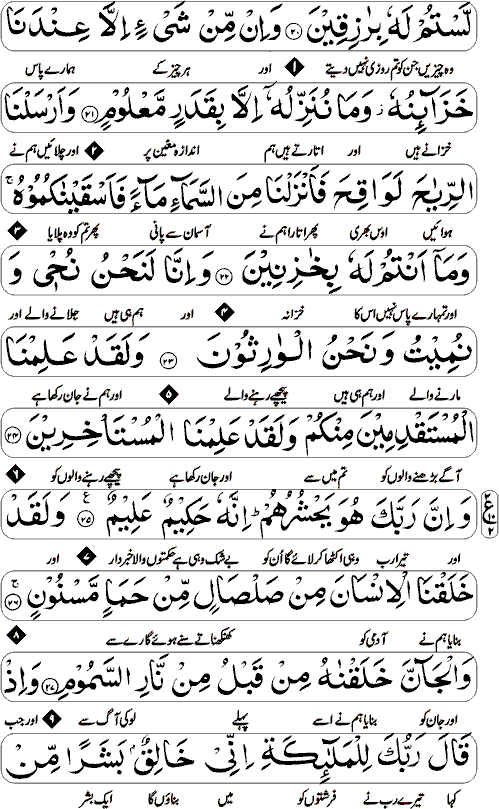 لَّسْتُمْ لَهٗ بِرٰزِقِیْنَ ﴿۲۰﴾ وَاِنْ مِّنْ شَیْءٍ اِلَّا عِنْدَنَا
وہ چیزیں جن کو تم روزی نہیں دیتے ۱ اور ہر چیز کے ہمارے پاس
خَزَآئِنُهٗ وَمَا نُنَزِّلُهٗۤ اِلَّا بِقَدَرٍ مَّعْلُوْمٍ ﴿۲۱﴾ وَاَرْسَلْنَا
خزانے ہیں اور اتارتے ہیں ہم اندازہ معین پر ۲ اور چلائیں ہم نے
الرِّیٰحَ لَوَاقِحَ فَاَنْزَلْنَا مِنَ السَّمَآءِ مَآءً فَاَسْقَیْنٰكُمُوْهُ ۚ
ہوائیں اوس بھری پھر اتارا ہم نے آسمان سے پانی پھر تم کو وہ پلایا ۳
وَمَاۤ اَنْتُمْ لَهٗ بِخٰزِنِیْنَ ﴿۲۲﴾ وَاِنَّا لَنَحْنُ نُحْیٖ وَ
اور تمہارے پاس نہیں اس کا خزانہ ۴ اور ہم ہی ہیں جلانے والے اور
نُمِیْتُ وَنَحْنُ الْوٰرِثُوْنَ ﴿۲۳﴾ وَلَقَدْ عَلِمْنَا
مارنے والے اور ہم ہی ہیں پیچھے رہنے والے ۵ اور ہم نے جان رکھا ہے
الْمُسْتَقْدِمِیْنَ مِنْكُمْ وَلَقَدْ عَلِمْنَا الْمُسْتَاْخِرِیْنَ ﴿۲۴﴾
آگے بڑھنے والوں کو تم میں سے اور جان رکھا ہے پیچھے رہنے والوں کو ۶
وَاِنَّ رَبَّكَ هُوَ یَحْشُرُهُمْ ؕ اِنَّهٗ حَكِیْمٌ عَلِیْمٌ ﴿۲۵﴾ ع وَلَقَدْ
اور تیرا رب وہی اکٹھا کر لائے گا اُن کو بے شک وہی ہے حکمتوں والا خبردار ۷ اور
خَلَقْنَا الْاِنْسَانَ مِنْ صَلْصَالٍ مِّنْ حَمَاٍ مَّسْنُوْنٍ ﴿۲۶﴾ ۚ
بنایا ہم نے آدمی کو کھنکھناتے سنے ہوئے گارے سے ۸
وَالْجَآنَّ خَلَقْنٰهُ مِنْ قَبْلُ مِنْ نَّارِ السَّمُوْمِ ﴿۲۷﴾ وَاِذْ
اور جان کو بنایا ہم نے اسے پہلے لو کی آگ سے ۹ اور جب
قَالَ رَبُّكَ لِلْمَلٰٓئِكَةِ اِنِّیْ خَالِقٌۢ بَشَرًا مِّنْ
کہا تیرے رب نے فرشتوں کو میں بناؤں گا ایک بشر